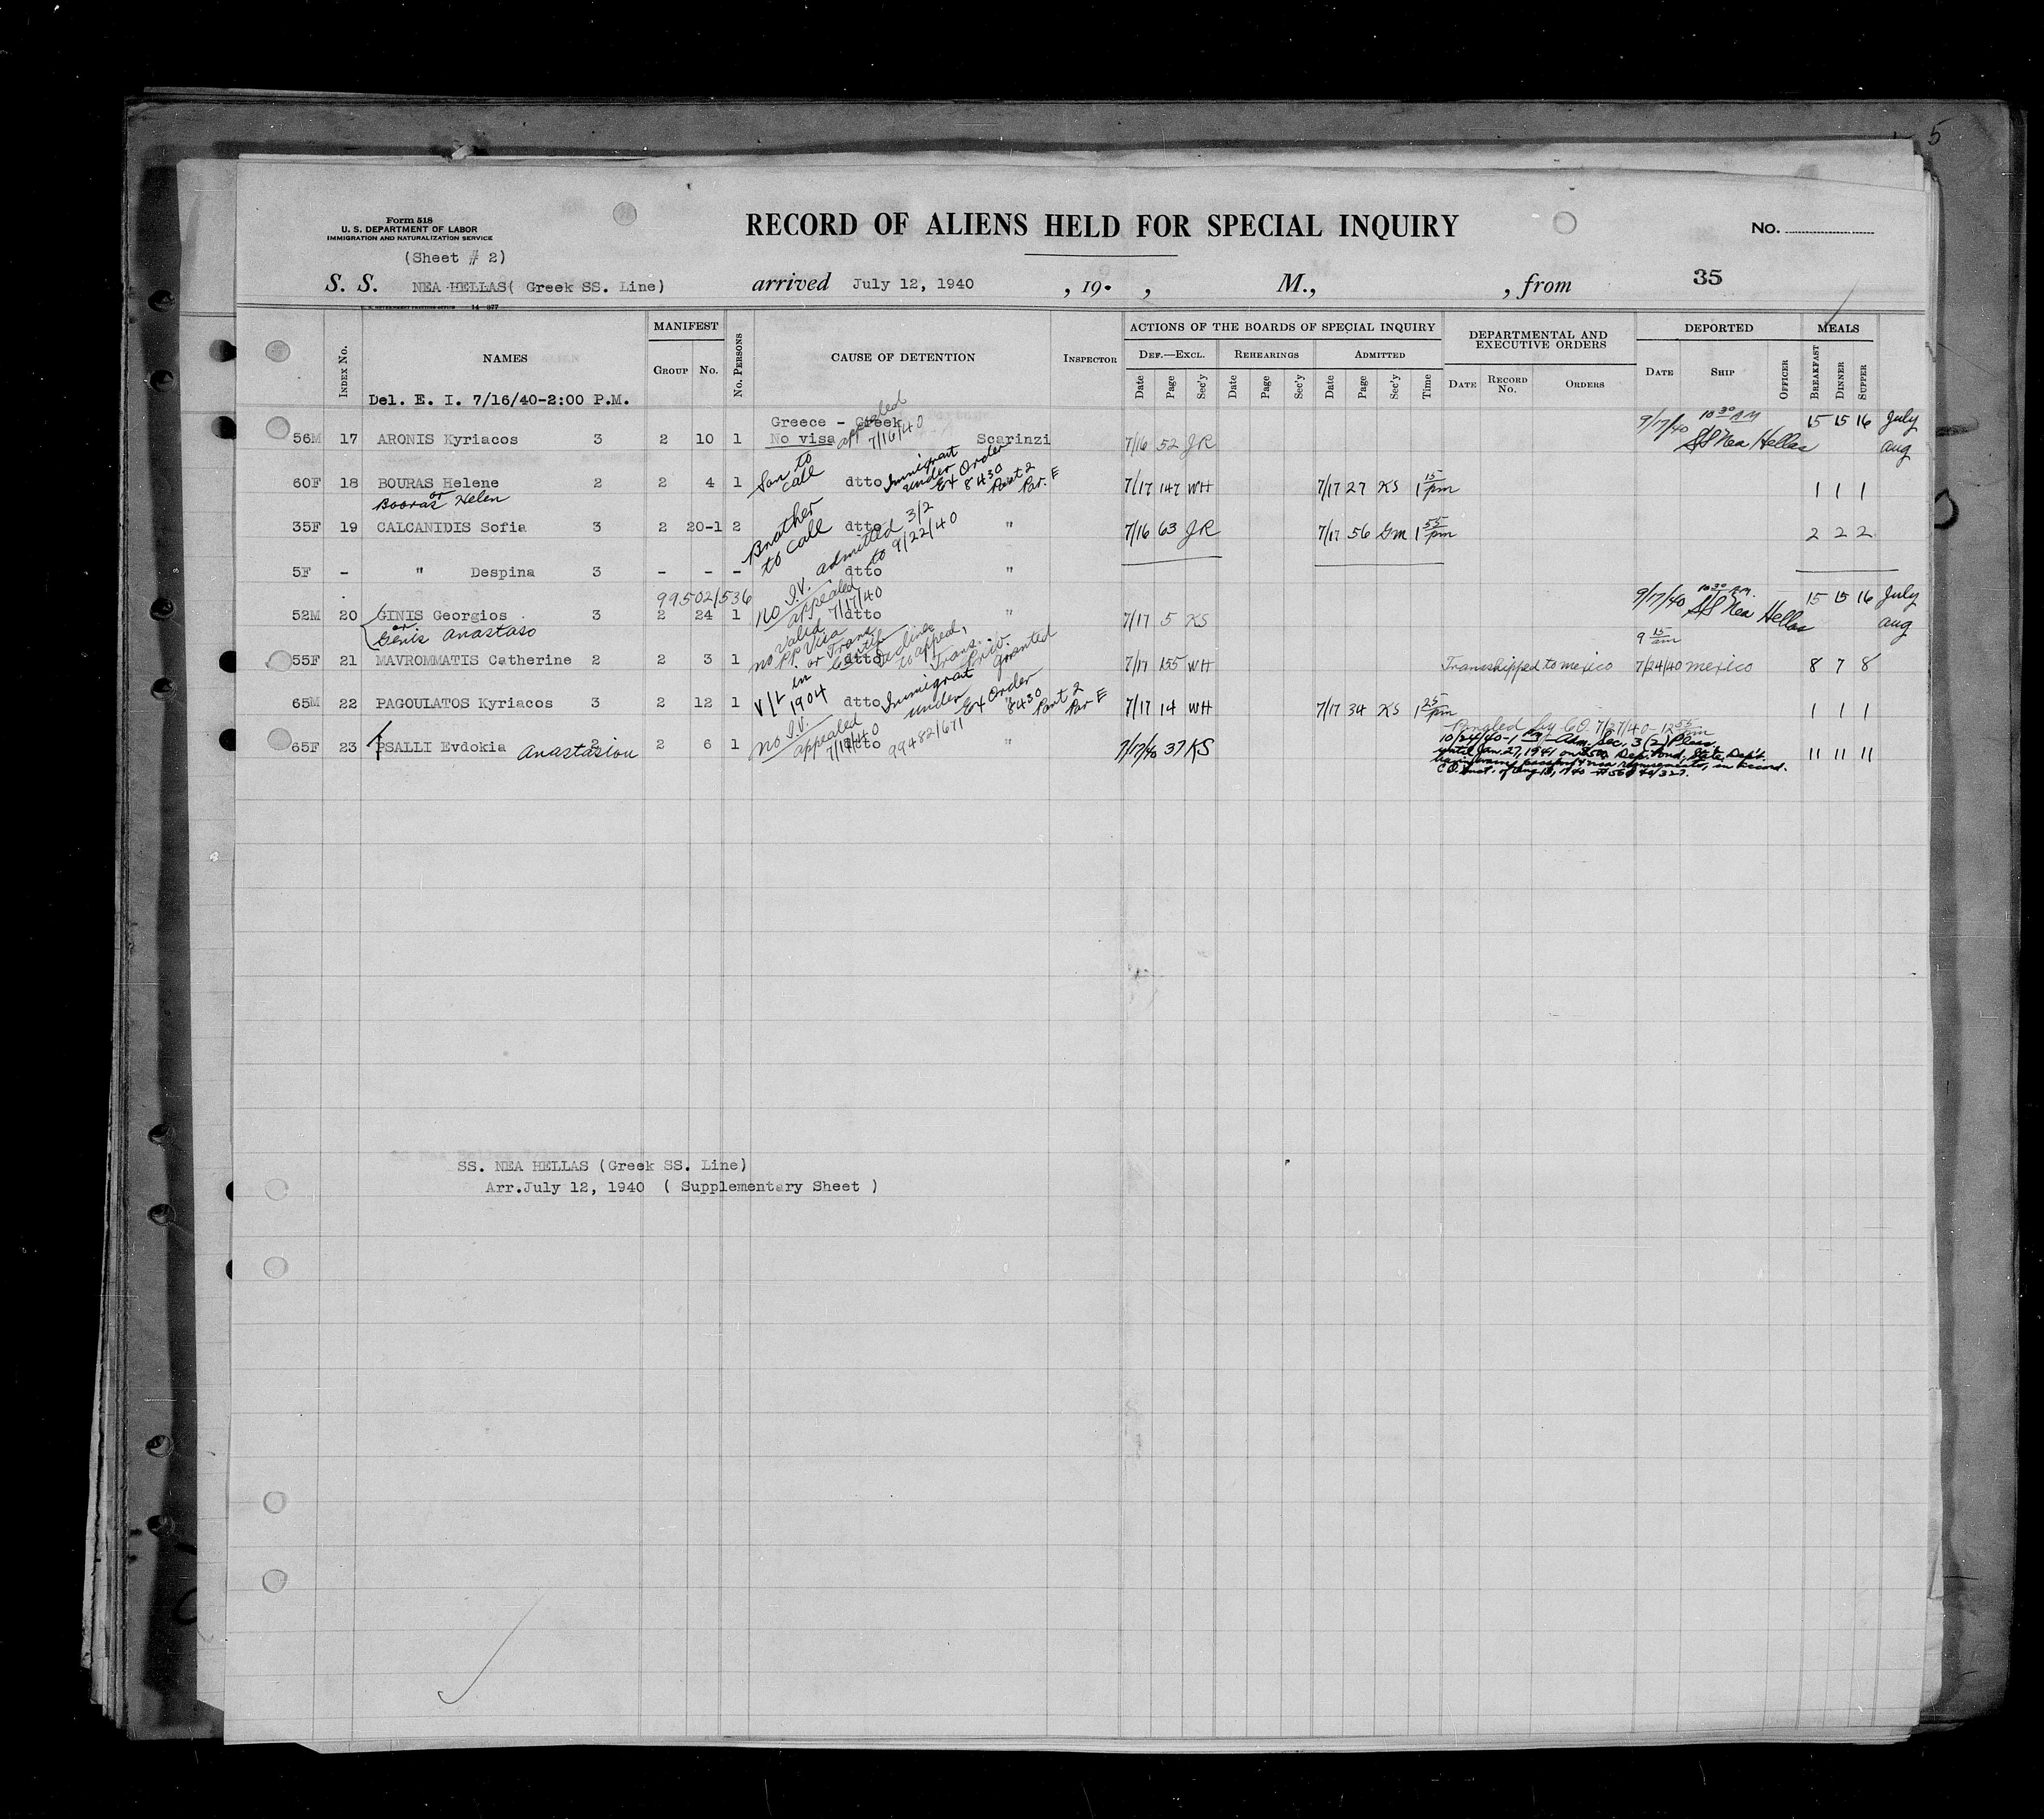 5
Form 518
U. S. DEPARTMENT OF LABOR
IMMIGRATION AND NATURALIZATION SERVICE
(Sheet # 2)
RECORD OF ALIENS HELD FOR SPECIAL INQUIRY
No.
S. S. NEA HELLAS( Greek SS. Line) arrived July 12, 1940 , 19 , M., , from 35
14—877
INDEX No. NAMES MANIFEST GROUP No. No. PERSONS CAUSE OF DETENTION INSPECTOR
ACTIONS OF THE BOARDS OF SPECIAL INQUIRY
DEF.—EXCL. Date Page Sec'y REHEARINGS Date Page Sec'y ADMITTED Date Page Sec'y Time
DEPARTMENTAL AND EXECUTIVE ORDERS DATE RECORD No. ORDERS
DEPORTED DATE SHIP OFFICER MEALS BREAKFAST DINNER SUPPER
Del. E. I. 7/16/40-2:00 P.M.
Greece - Greek appealed 7/16/40
56M 17 ARONIS Kyriacos 3 2 10 1 No visa Scarinzi 7/16 52 JR 9/17/40 10 30 AM SS Nea Hellas 15 15 16 July Aug
60F 18 BOURAS Helene 2 2 4 1 Son to call dtto Immigrant under Ex Order 8430 Part 2 Par. E 7/17 147 WH 7/17 27 KS 1 15 pm 1 1 1
or Booras Helen
35F 19 CALCANIDIS Sofia 3 2 20-1 2 Brother to call dtto admitted 3/2 to 9/22/40 " 7/16 63 JR 7/17 56 GM 1 55 pm 2 2 2
5F - " Despina 3 - - - dtto "
99502/536
52M 20 GINIS Georgios 3 2 24 1 No I.V. appealed 7/17/40 dtto " 7/17 5 KS 9/17/40 10 30 AM. SS Nea Hellas 15 15 16 July Aug
or Genis Anastaso
55F 21 MAVROMMATIS Catherine 2 2 3 1 no valid P.P. Visa or Trans. dtto declines to appeal, Trans. Priv. granted 7/17 155 WH Transhipped to Mexico 7/24/40 9 15 am Mexico 8 7 8
65M 22 PAGOULATOS Kyriacos 3 2 12 1 V/L in 1904 dtto Immigrant under Ex Order 8430 Part 2 Par E " 7/17 14 WH 7/17 34 KS 1 25 pm 1 1 1
65F 23 PSALLI Evdokia Anastasiou 2 2 6 1 no I.V. appealed dtto 99482/671 " 7/17/40 37 KS 11 11 11
Paroled by CO. 7/27/40-12 55 pm
10/24/40-1 Adm. Sec. 3 (2) Pleas.
until Jan. 27, 1941 on $500. Dep. Bond, State Dep't.
SS. NEA HELLAS (Greek SS. Line)
Arr.July 12, 1940 ( Supplementary Sheet )